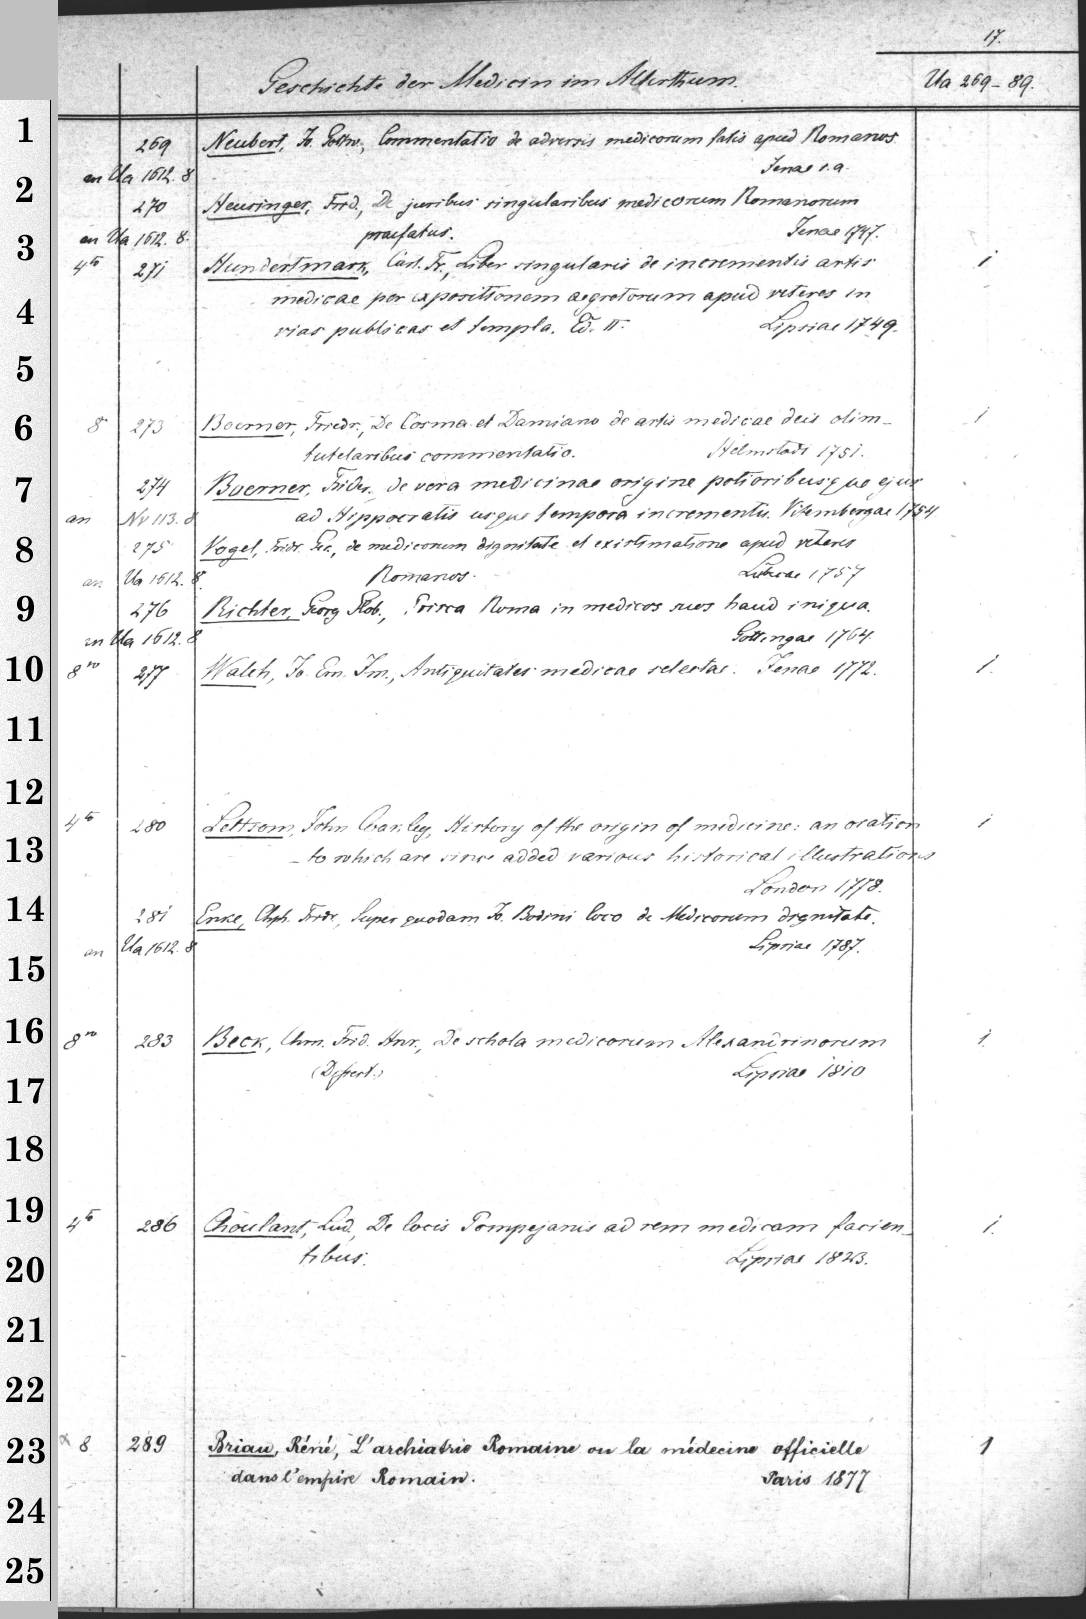 17.
Geschichte der Medicin im Alterthum. Ua 269-89.
1 269 Neubert, Jo. Gotthv., Commentatio de adversis medicorum fatis apud Romanos.
an Ua 1612. 8 Jenae s. a.
2 270 Heusinger, Frid., De juribus singularibus medicorum Romanorum
an Ua 1612. 8. praefatus. Jenae 1747.
3 4to 271 Hundertmark, Carl. Fr., Liber singularis de incrementis artis 1
medicae per expositionem aegrotorum apud veteres in
4 vias publicas et templa. Ed. II. Lipsiae 1749.
5
6 8 273 Boerner, Friedr., De Cosma et Damiano de artis medicae deis olim- 1
tutelaribus commentatio. Helmstadt 1751.
7 274 Boerner, Frider., de vera medicinae origine potioribusque ejus
an Nv 113. 8 ad Hippocratis usque tempora incrementis. Vitembergae 1754
8 275 Vogel, Fridr. , de medicorum dignitate et existimatione apud veteres
an Ua 1612. 8. Romanos. Lubecae 1757
9 276 Richter, Georg Glob., Prisca Roma in medicos suos haud iniqua.
an Ua 1612. 8 Gottingae 1764.
10 8vo 277 Walch, Jo. Ern. Im., Antiquitates medicae selectae. Jenae 1772. 1.
11
12
4to 280 Lettsom, John Coakley, History of the origin of medicine: an oration 1
13 - to which are since added various historical illustrations
London 1778.
14 281 Enke, Chph. Fride., Super quodam Jo. Bodini loco de Medicorum dignitate.
an Ua 1612. 8 Lipsiae 1787.
15
16 8vo 283 Beck, Chrn. Frid. Hnr., De schola medicorum Alexandrinorum 1.
(Dissert.) Lipsiae 1810
17
18
19 4to 286 Choulant, Lud., De locis Pompejanis ad rem medicam facien- 1.
20 tibus. Lipsiae 1823.
21
22
23 x 8 289 Briau, Réné, L'archiatrie Romaine ou la médecine officielle 1
dans l'empire Romain. Paris 1877
24
25